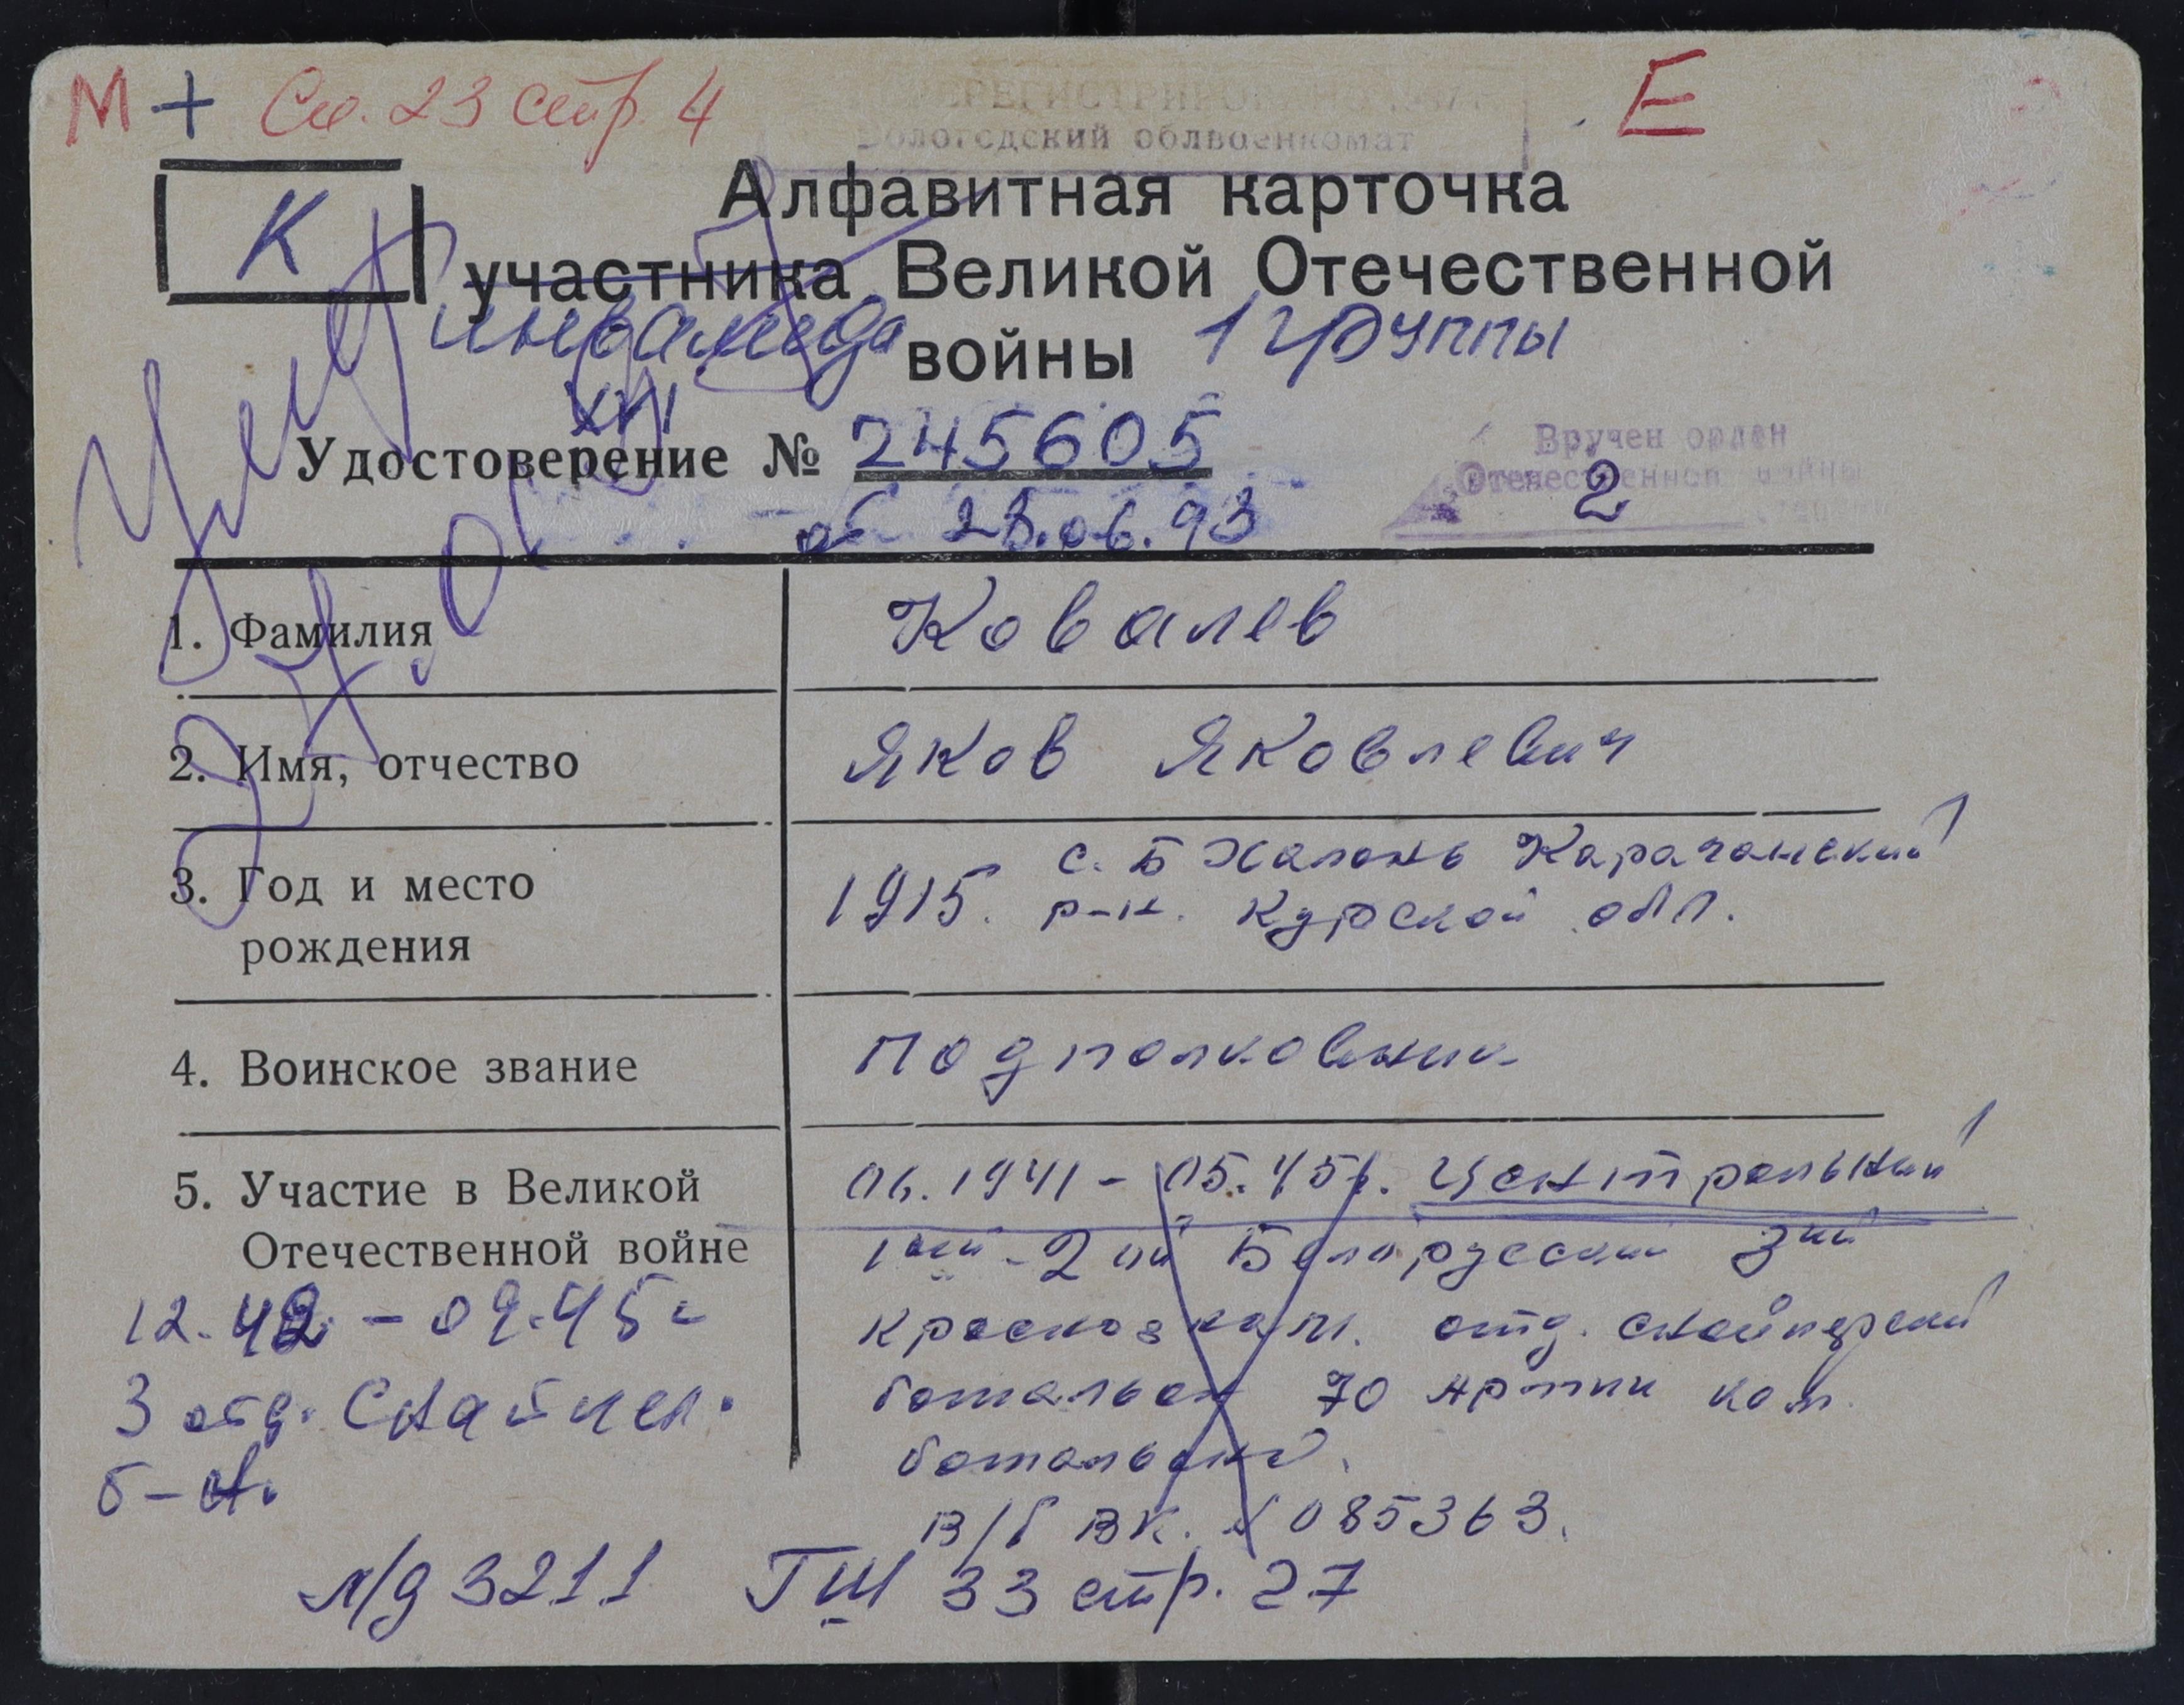 М + Сп. 23 стр. 4
Е
ПЕРЕРЕГИСТРИРОВАНО
Вологодский облвоенкомат
К
Алфавитная карточка
участника Великой Отечественной
инвалида войны 1 группы
Умер
XVI
Удостоверение № 245605
от 28.06.93
Вручен орден
Отечественной войны
2
1. Фамилия Ковалев
2. Имя, отчество Яков Яковлевич
3. Год и место рождения
1915. с. Б
р-н. Курской обл.
4. Воинское звание Подполковник
5. Участие в Великой
Отечественной войне
06.1941 - 05.45г. Центральный
1ый - 2ой Белорусский 3ий
Краснознам. отд. снайперский
батальон 70 Армии ком.
батальона.
в/б ВК. № 085363.
12.42 - 09.45г
3 отд. Снайпер.
б-н.
л/д 3211 ГШ 33 стр. 27